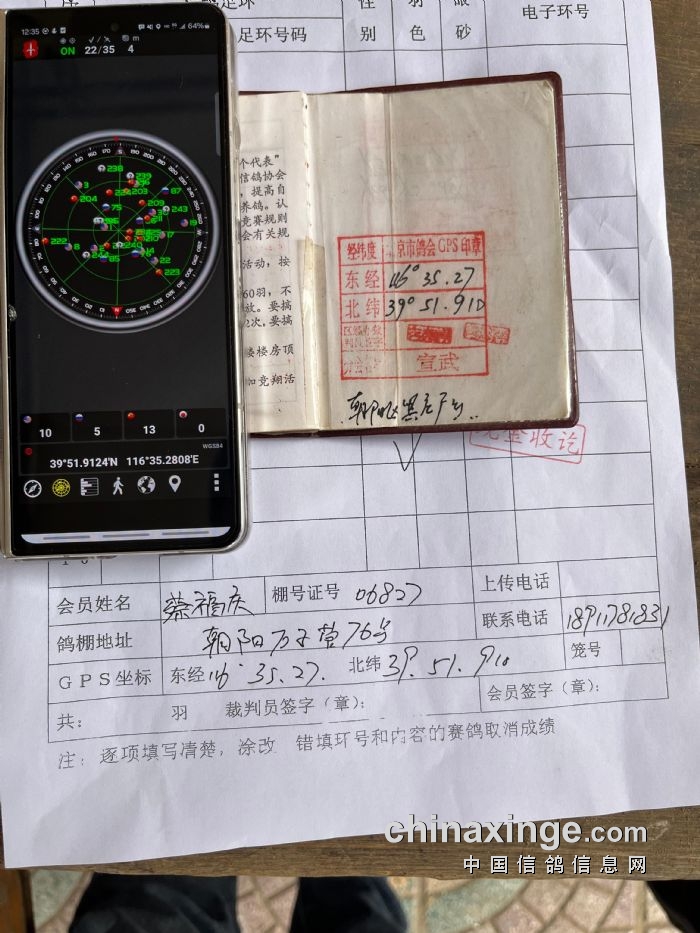 12:35
64%
ON 22/35 4
足环号码
性别
羽色
眼砂
电子环号
个代表"
信鸽协会
，提高自
养鸽。认
竞赛规则
会有关规
活动，按
60羽，不
放。要搞
2次，要搞
娄楼房顶
加竞翔活
经纬度 北京市鸽会GPS印章
东经 116° 35.27
北纬 39° 51.910
宣武
10 5 13 0
WGS84
39°51.9124'N 116°35.2808'E
收讫
会员姓名 蔡福庆 棚号证号 06827 上传电话
鸽棚地址 朝阳万子营76号 联系电话 18911781831
GPS坐标 东经116° 35.27. 北纬39. 51. 910 笼号
共： 羽 裁判员签字（章）： 会员签字（章）：
注：逐项填写清楚，涂改 错填环号和内容的赛鸽取消成绩
chinaxinge.com
中国信鸽信息网